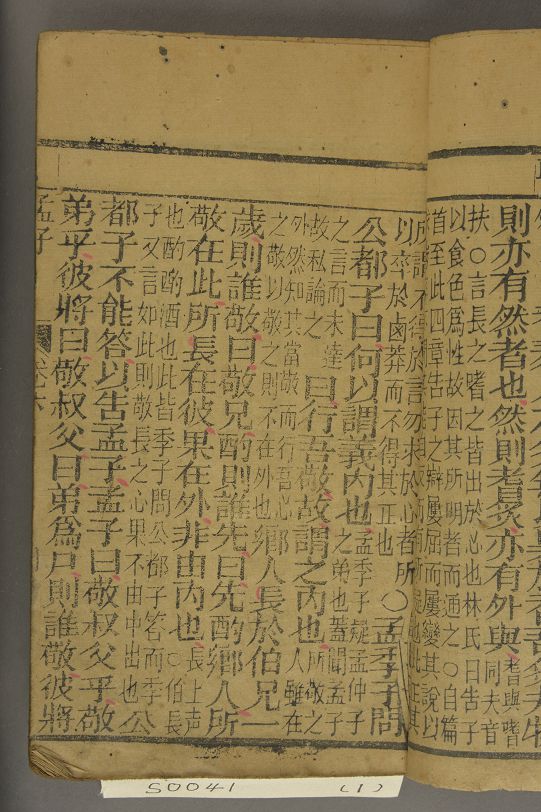 則亦有然者也然則耆炙亦有外與耆與嗜同夫音
扶○言長之嗜之皆出於心也林氏曰告子
以食色爲性故因其所明者而通之○自篇
首至此四章告子之辯屢屈而屢變其說以
以卒於鹵莽而不得其正也○孟季子問
公都子曰何以謂義內也孟季子疑孟仲子
之弟也蓋聞孟子
之言而未達
故私論之曰行吾敬故謂之內也所敬之
人雖在
外然知其當敬而行吾心
之敬以敬之則不在外也鄉人長於伯兄一
歲則誰敬曰敬兄酌則誰先曰先酌鄉人所
敬在此所長在彼果在外非由內也長上声
○伯長
也酌酌酒也此皆季子問公都子答而季
子又言如此則敬長之心果不由中出也公
都子不能答以告孟子孟子曰敬叔父乎敬
弟乎彼將曰敬叔父曰弟爲尸則誰敬彼將
孟子 卷六
S0041 (1)